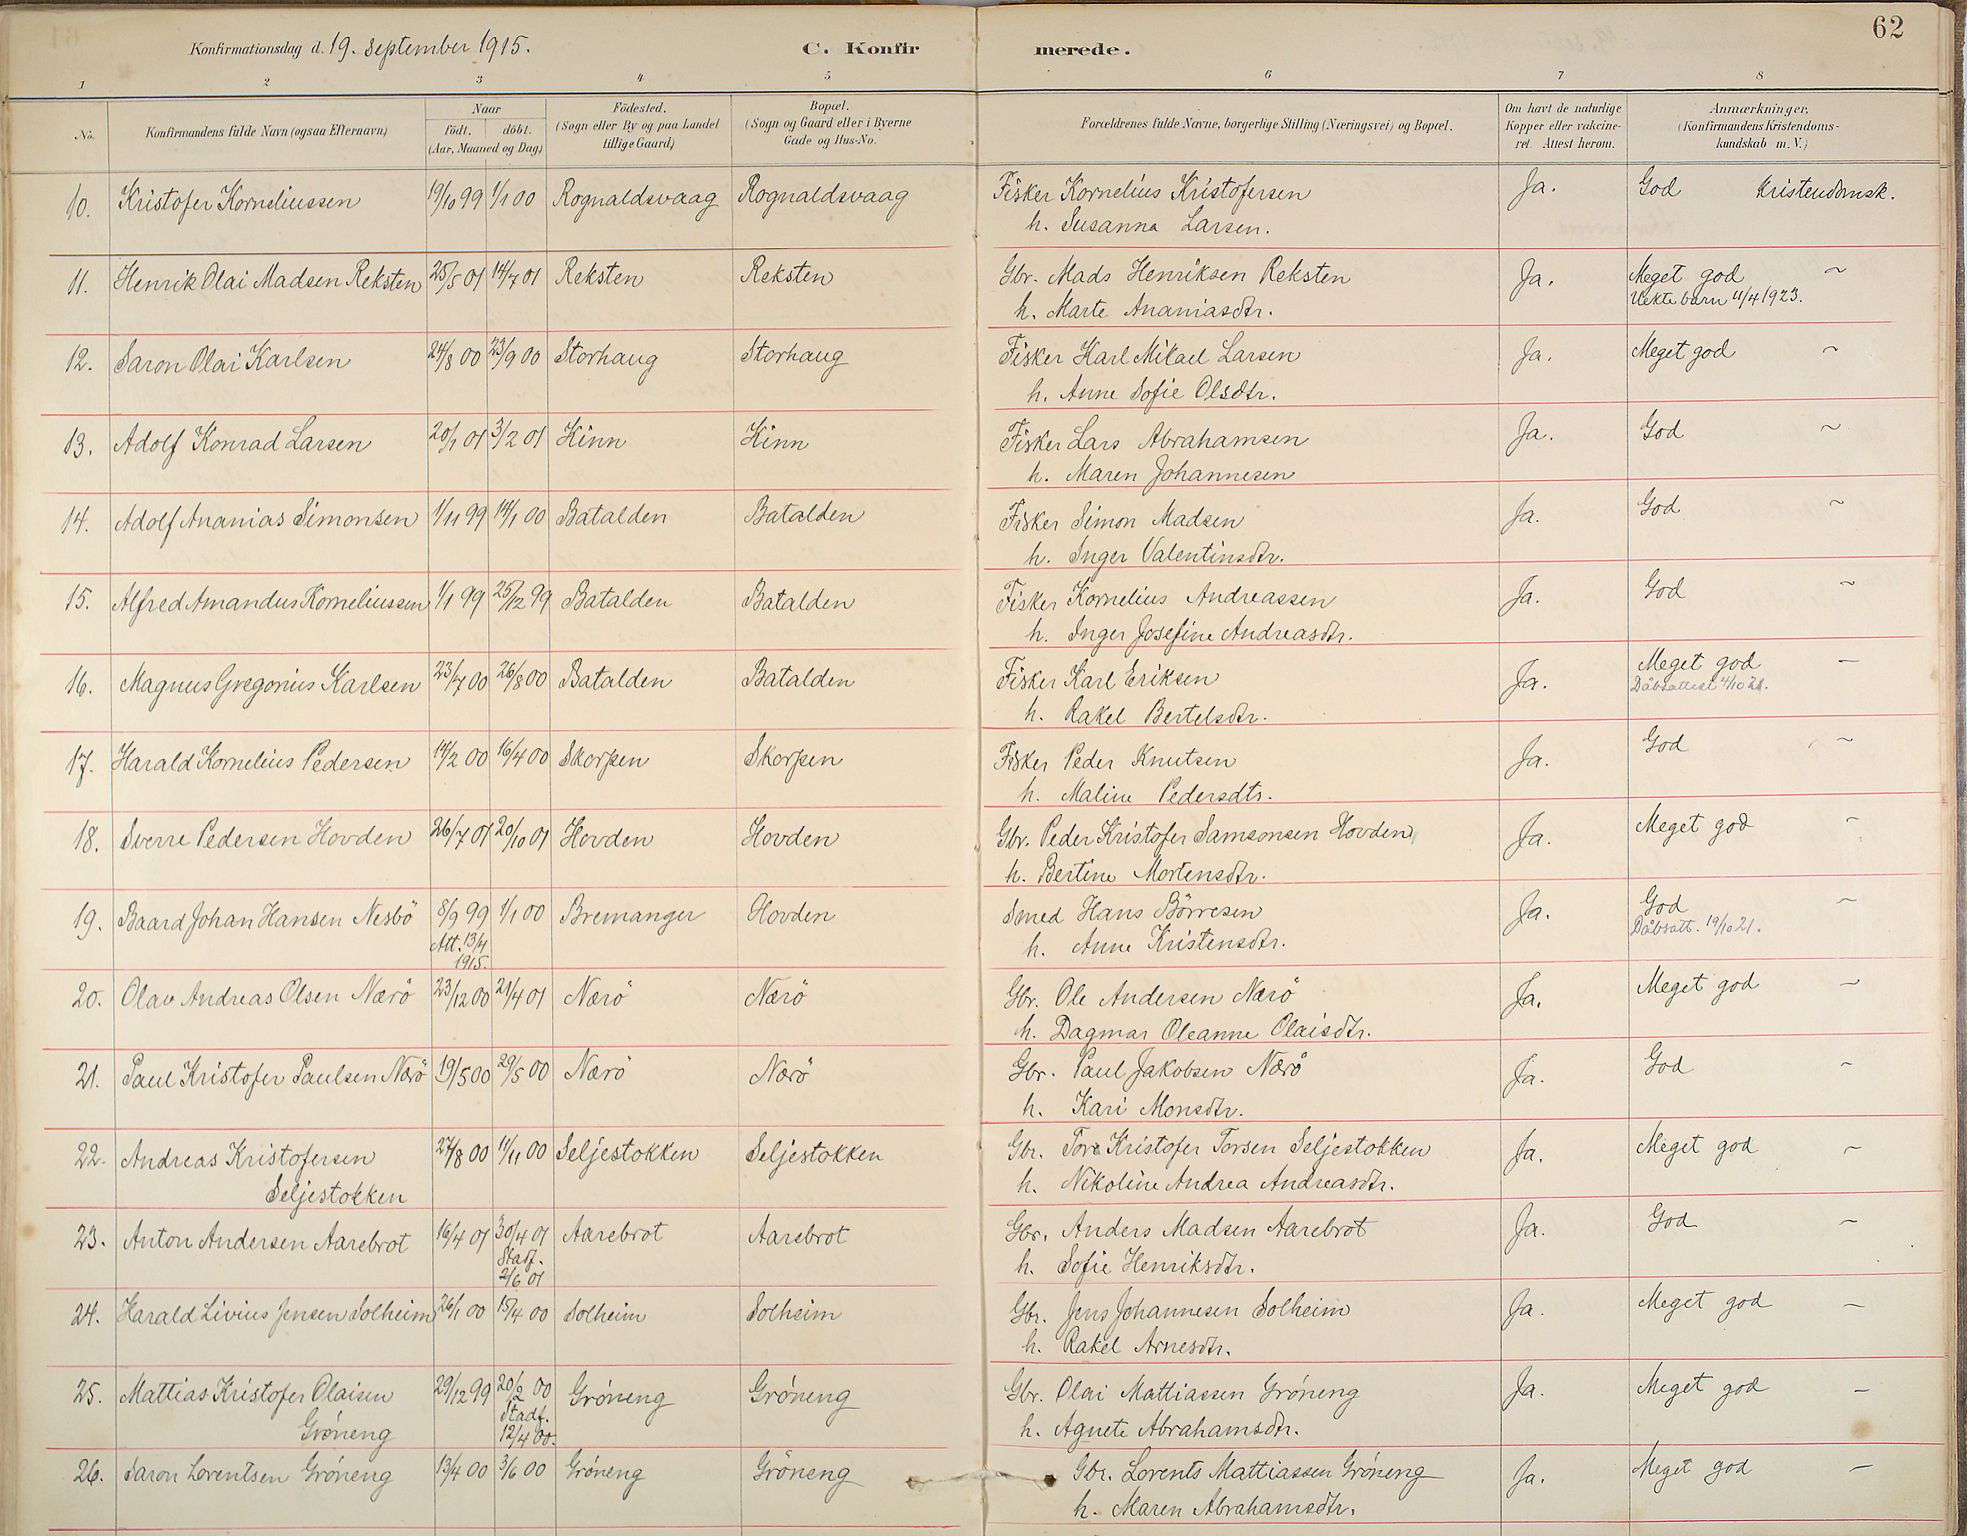 62
Konfirmationsdag d. 19. september 1915. C. Konfirmerede.
1 2 3 4 5 6 7 8
No. Konfirmandens fulde Navn (ogsaa Efternavn) Naar födt. döbt. (Aar, Maaned og Dag) Födested. (Sogn eller By og paa Landet tillige Gaard) Bopæl. (Sogn og Gaard eller i Byerne Gade og Hus-No. Forældrenes fulde Navne, borgerlige Stilling (Næringsvei) og Bopæl. Om havt de naturlige Kopper eller vakcineret. Attest herom. Anmærkninger, (Konfirmandens Kristendomskundskab m. V.)
10. Kristofer Korneliussen 19/10 99 1/1 00 Rognaldsvaag Rognaldsvaag Fisker Kornelius Kristofersen Ja. God Kristendomsk.
h. Susanna Larsen.
11. Henrik Olai Madsen Reksten 25/5 01 14/7 01 Reksten Reksten Gbr. Mads Henriksen Reksten Ja. Meget god ~
h. Marte Ananiasdtr. Uekte barn 11/4 1923.
12. Saron Olai Karlsen 24/8 00 23/9 00 Storhaug Storhaug Fisker Karl Mikael Larsen Ja. Meget god ~
h. Anne Sofie Olsdtr.
13. Adolf Konrad Larsen 20/1 01 3/2 01 Kinn Kinn Fisker Lars Abrahamsen Ja. God ~
h. Maren Johannesen
14. Adolf Ananias Simonsen 1/11 99 14/1 00 Batalden Batalden Fisker Simon Madsen Ja. God ~
h. Inger Valentinsdtr.
15. Alfred Amandus Korneliussen 1/1 99 25/12 99 Batalden Batalden Fisker Kornelius Andreassen Ja. God ~
h. Inger Josefine Andreasdtr.
16. Magnus Gregorius Karlsen 23/7 00 26/8 00 Batalden Batalden Fisker Karl Eriksen Ja. Meget god ~
h. Rakel Bertelsdtr. Dåbsattest 4/10 21.
17. Harald Kornelius Pedersen 14/2 00 16/4 00 Skorpen Skorpen Fisker Peder Knutsen Ja. God ~
h. Maline Pedersdtr.
18. Sverre Pedersen Hovden 26/7 01 20/10 01 Hovden Hovden Gbr. Peder Kristofer Samsonsen Hovden Ja. Meget god ~
h. Bertine Mortensdtr.
19. Baard Johan Hansen Nesbö 8/9 99 1/1 00 Bremanger Hovden Smed Hans Börresen Ja. God ~
Att. 13/4 1915. h. Anne Kristensdtr. Dåbsatt. 19/10 21.
20. Olav Andreas Olsen Nærö 23/12 00 21/4 01 Nærö Nærö Gbr. Ole Andersen Nærö Ja. Meget god ~
h. Dagmar Oleanne Olaisdtr.
21. Paul Kristofer Paulsen Nærö 19/5 00 29/5 00 Nærö Nærö Gbr. Paul Jakobsen Nærö Ja. God ~
h. Kari Monsdtr.
22. Andreas Kristofersen 27/8 00 11/11 00 Seljestokken Seljestokken Gbr. Tore Kristofer Torsen Seljestokken Ja. Meget god ~
Seljestokken h. Nikoline Andrea Andreasdtr.
23. Anton Andersen Aarebrot 16/4 01 30/4 01 Aarebrot Aarebrot Gbr. Anders Madsen Aarebrot Ja. God ~
Stadf. 2/6 01 h. Sofie Henriksdtr.
24. Harald Livius Jensen Solheim 26/1 00 15/4 00 Solheim Solheim Gbr. Jens Johannesen Solheim Ja. Meget god ~
h. Rakel Arnesdtr.
25. Mattias Kristofer Olaisen 29/12 99 20/2 00 Gröneng Gröneng Gbr. Olai Mattiassen Gröneng Ja. Meget god ~
Gröneng Stadf. 12/4 00. h. Agnete Abrahamsdtr.
26. Saron Lorentsen Gröneng 13/4 00 3/6 00 Gröneng Gröneng Gbr. Lorents Mattiassen Gröneng Ja. Meget god ~
h. Maren Abrahamsdtr.